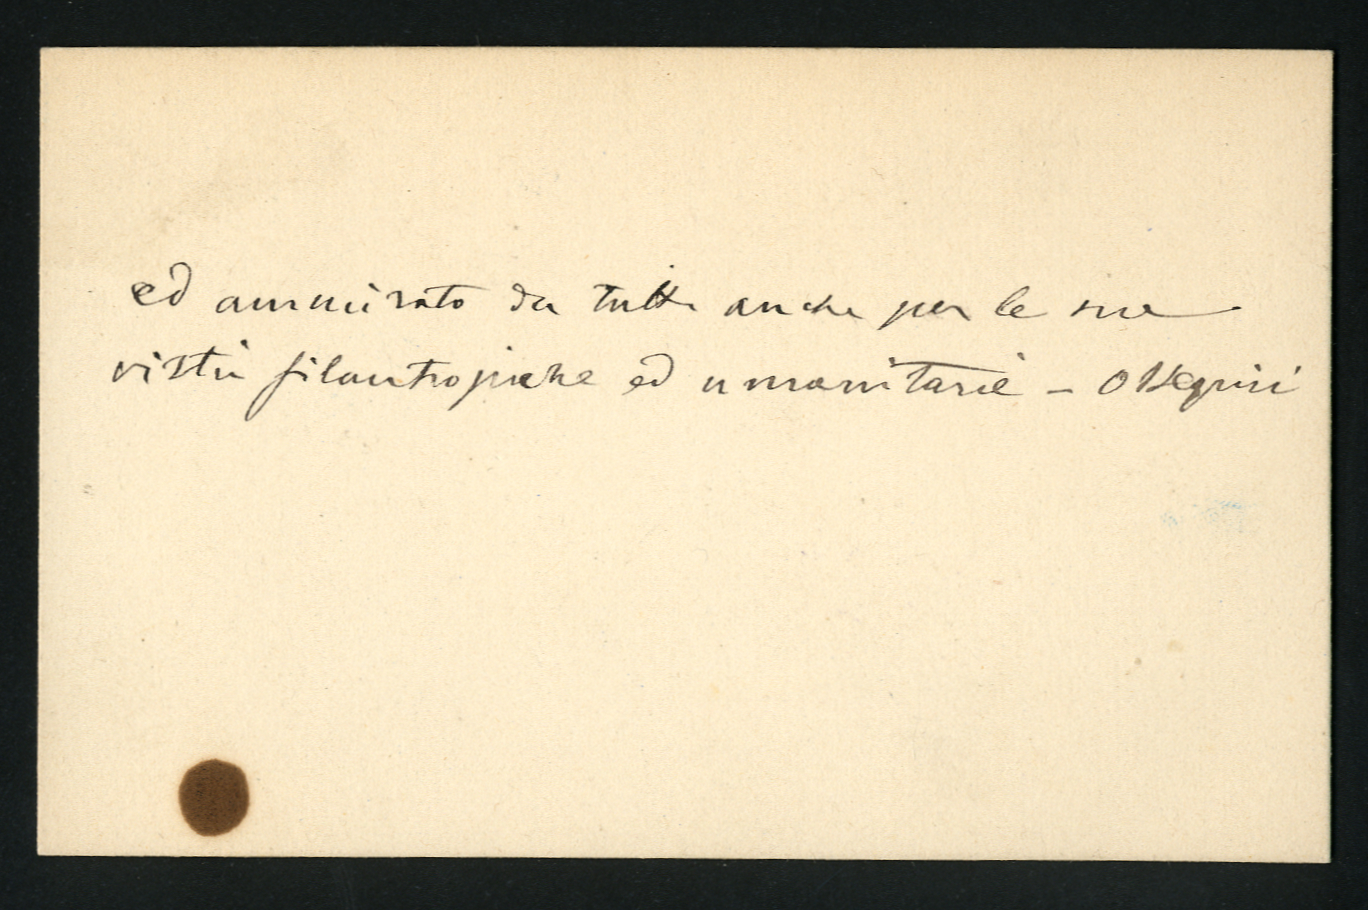 ed ammirato da tutti anche per le sue
virtù filantropiche ed umanitarie - Ossequii